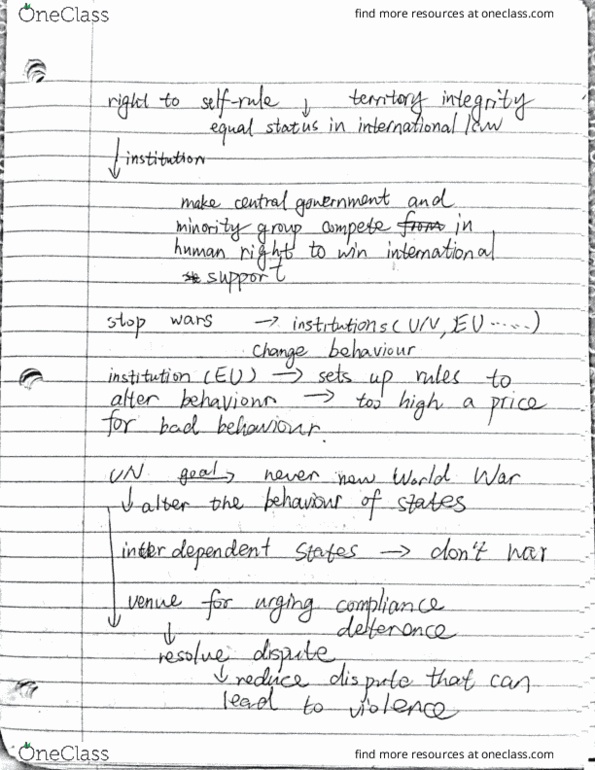 OneClass find more resources at oneclass.com
right to self-rule ↓ territory integrity
equal status in international law
↓ institution
make central government and
minority group compete from in
human right to win international
support
stop wars → institutions (U/V, EU ......)
change behaviour
institution (EU) → sets up rules to
alter behaviour → too high a price
for bad behaviour.
UN goal→ never new World War
↓ alter the behaviour of states
interdependent states → don't war
venue for urging compliance
deterence
↓
resolve dispute
↓ reduce dispute that can
lead to violence
OneClass find more resources at oneclass.com